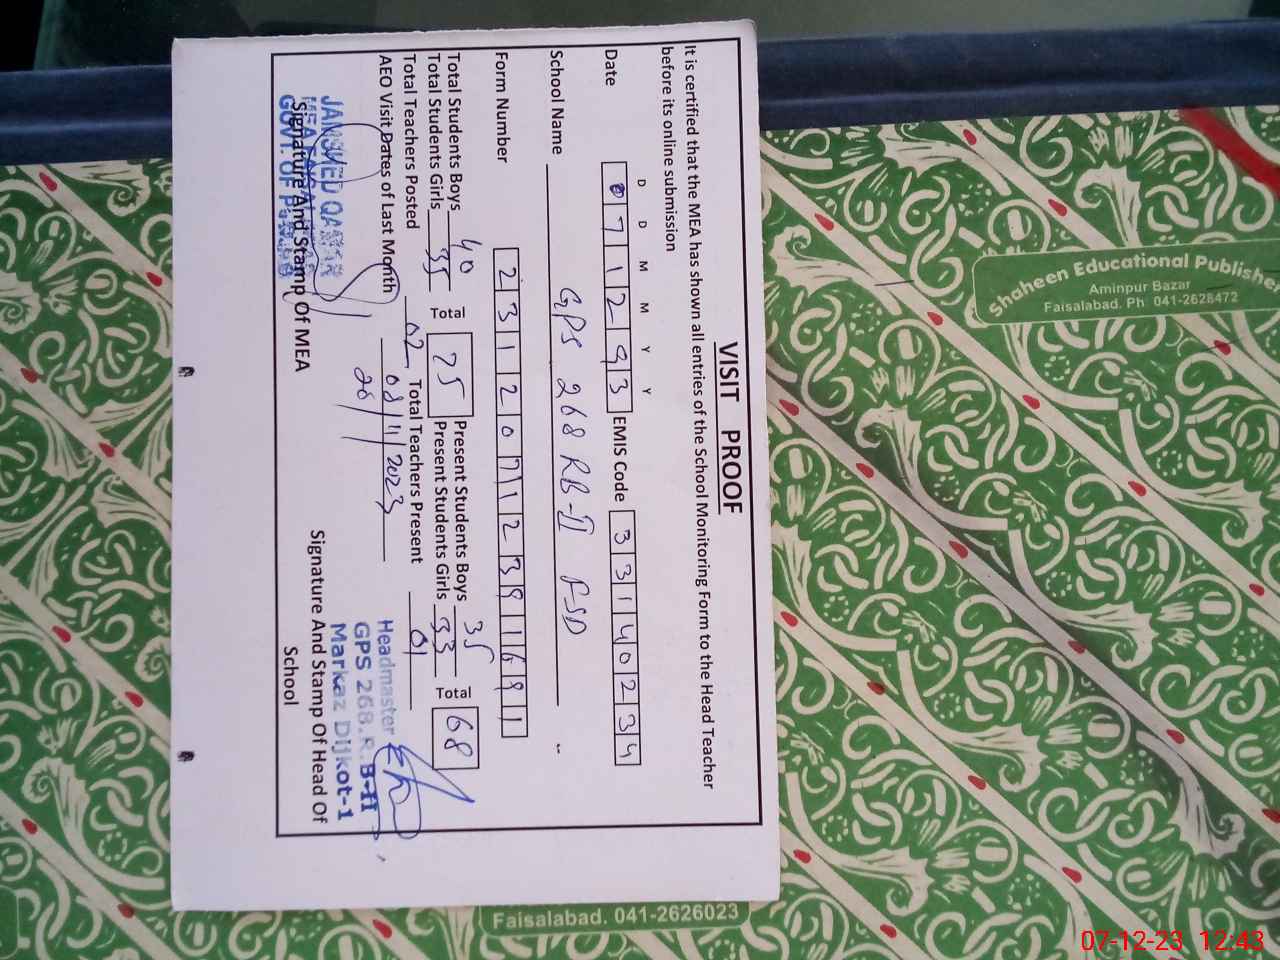 VISIT PROOF
It is certified that the MEA has shown all entries of the School Monitoring Form to the Head Teacher
before its online submission
D D M M Y Y
Date 0 7 1 2 2 3 EMIS Code 3 3 1 4 0 2 3 4
School Name GPS 268 RB-II FSD
Form Number 2 3 1 2 0 7 1 2 3 9 1 6 9 1
Total Students Boys 40 Total 75 Present Students Boys 35 Total 68
Total Students Girls 35 Present Students Girls 33
Total Teachers Posted 02 Total Teachers Present 01
AEO Visit Dates of Last Month 08/11/2023
28/
JAMSHED QAMAR
MEA
GOVT. OF
Signature And Stamp Of MEA
Headmaster
GPS 268.R.B-II
Markaz Dijkot-1
Signature And Stamp Of Head Of
School
Shaheen Educational Publisher
Aminpur Bazar
Faisalabad. Ph 041-2628472
Faisalabad. 041-2626023
07-12-23 12:43